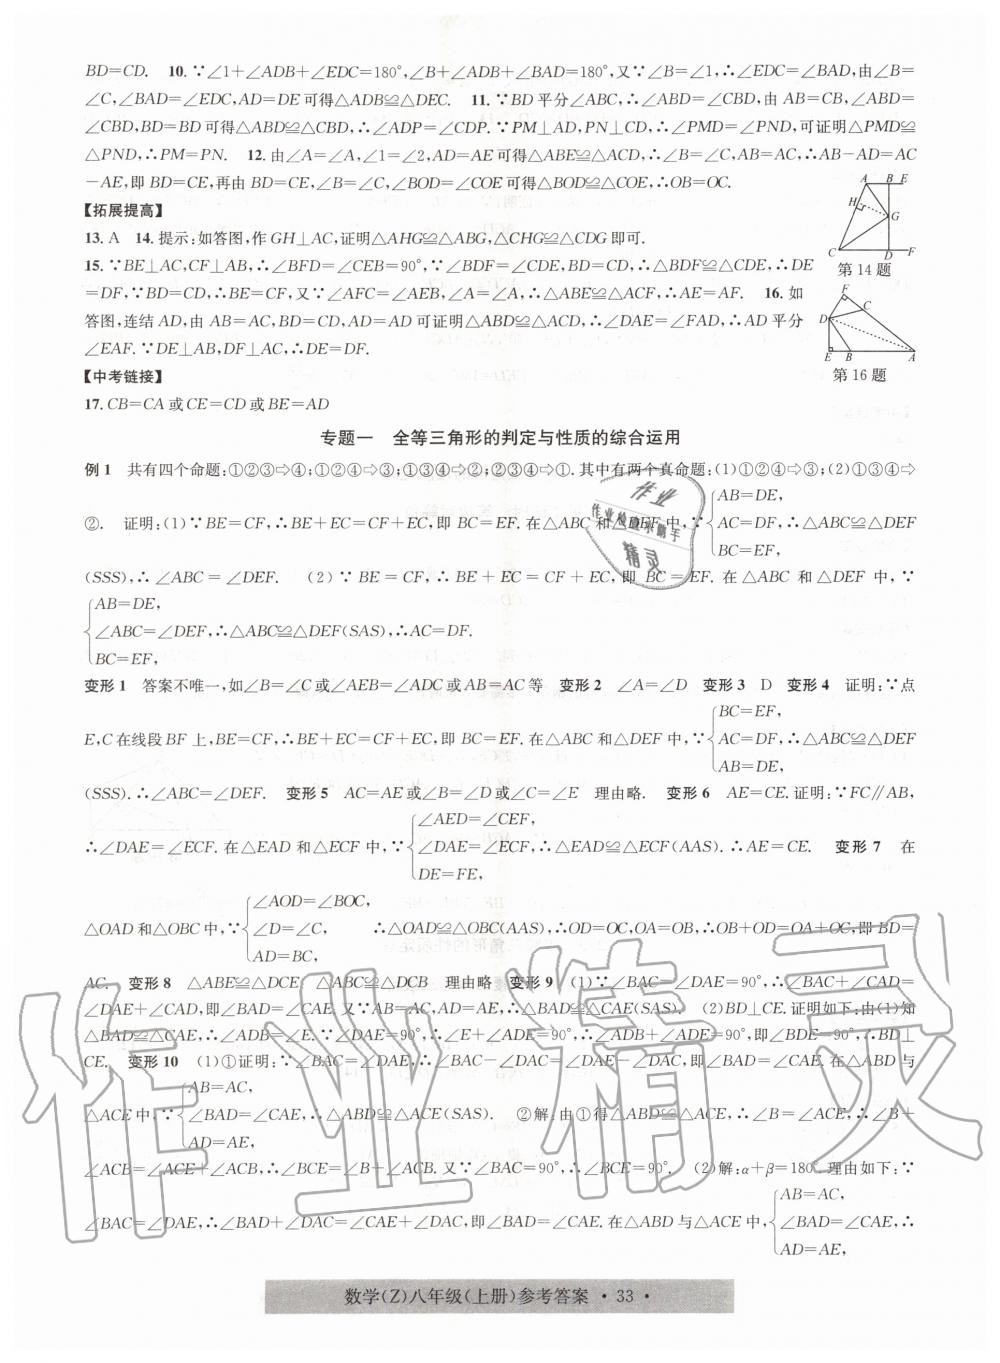 BD=CD.　10.∵∠1+∠ADB+∠EDC=180°,∠B+∠ADB+∠BAD=180°,又∵∠B=∠1,∴∠EDC=∠BAD,由∠B=
∠C,∠BAD=∠EDC,AD=DE可得△ADB≌△DEC.　11.∵BD平分∠ABC,∴∠ABD=∠CBD,由AB=CB,∠ABD=
∠CBD,BD=BD可得△ABD≌△CBD,∴∠ADP=∠CDP.∵PM⊥AD,PN⊥CD,∴∠PMD=∠PND,可证明△PMD≌
△PND,∴PM=PN.　12.由∠A=∠A,∠1=∠2,AD=AE可得△ABE≌△ACD,∴∠B=∠C,AB=AC,∴AB-AD=AC
-AE,即BD=CE,再由BD=CE,∠B=∠C,∠BOD=∠COE可得△BOD≌△COE,∴OB=OC.
【拓展提高】
13.A　14.提示:如答图,作GH⊥AC,证明△AHG≌△ABG,△CHG≌△CDG即可.
A B E
H
G
C D F
第14题
15.∵BE⊥AC,CF⊥AB,∴∠BFD=∠CEB=90°,∵∠BDF=∠CDE,BD=CD,∴△BDF≌△CDE,∴DE
=DF,∵BD=CD,∴BE=CF,又∵∠AFC=∠AEB,∠A=∠A,∴△ABE≌△ACF,∴AE=AF.　16.如
答图,连结AD,由AB=AC,BD=CD,AD=AD可证明△ABD≌△ACD,∴∠DAE=∠FAD,∴AD平分
∠EAF.∵DE⊥AB,DF⊥AC,∴DE=DF.
F
C
D
E B A
第16题
【中考链接】
17.CB=CA或CE=CD或BE=AD
专题一　全等三角形的判定与性质的综合运用
例1　共有四个命题:①②③⇨④;①②④⇨③;①③④⇨②;②③④⇨①.其中有两个真命题:(1)①②④⇨③;(2)①③④⇨
AB=DE,
②.　证明:(1)∵BE=CF,∴BE+EC=CF+EC,即BC=EF.在△ABC和△DEF中,∵{AC=DF,∴△ABC≌△DEF
BC=EF,
(SSS),∴∠ABC=∠DEF.　(2)∵BE=CF,∴BE+EC=CF+EC,即BC=EF.在△ABC和△DEF中,∵
AB=DE,
{∠ABC=∠DEF,∴△ABC≌△DEF(SAS),∴AC=DF.
BC=EF,
变形1　答案不唯一,如∠B=∠C或∠AEB=∠ADC或AB=AC等　变形2　∠A=∠D　变形3　D　变形4　证明:∵点
BC=EF,
E,C在线段BF上,BE=CF,∴BE+EC=CF+EC,即BC=EF.在△ABC和△DEF中,∵{AC=DF,∴△ABC≌△DEF
AB=DE,
(SSS).∴∠ABC=∠DEF.　变形5　AC=AE或∠B=∠D或∠C=∠E　理由略.　变形6　AE=CE.证明:∵FC∥AB,
∠AED=∠CEF,
∴∠DAE=∠ECF.在△EAD和△ECF中,∵{∠DAE=∠ECF,∴△EAD≌△ECF(AAS).∴AE=CE.　变形7　在
DE=FE,
∠AOD=∠BOC,
△OAD和△OBC中,∵{∠D=∠C,　∴△OAD≌△OBC(AAS),∴OD=OC,OA=OB,∴OB+OD=OA+OC,即BD=
AD=BC,
AC.　变形8　△ABE≌△DCE　△ABC≌△DCB　理由略　变形9　(1)∵∠BAC=∠DAE=90°,∴∠BAC+∠CAD=
∠DAE+∠CAD,即∠BAD=∠CAE.又∵AB=AC,AD=AE,∴△BAD≌△CAE(SAS).　(2)BD⊥CE.证明如下:由(1)知
△BAD≌△CAE,∴∠ADB=∠E.∵∠DAE=90°,∴∠E+∠ADE=90°,∴∠ADB+∠ADE=90°,即∠BDE=90°.∴BD⊥
CE.　变形10　(1)①证明:∵∠BAC=∠DAE,∴∠BAC-∠DAC=∠DAE-∠DAC,即∠BAD=∠CAE.在△ABD与
AB=AC,
△ACE中,∵{∠BAD=∠CAE,∴△ABD≌△ACE(SAS).　②解:由①得△ABD≌△ACE,∴∠B=∠ACE,∴∠B+
AD=AE,
∠ACB=∠ACE+∠ACB,∴∠BCE=∠B+∠ACB.又∵∠BAC=90°,∴∠BCE=90°.　(2)解:α+β=180°.理由如下:∵
AB=AC,
∠BAC=∠DAE,∴∠BAD+∠DAC=∠CAE+∠DAC,即∠BAD=∠CAE.在△ABD与△ACE中,{∠BAD=∠CAE,∴
AD=AE,
数学(Z)八年级(上册)参考答案 · 33 ·
作业
作业检查小助手
精灵
作业精灵